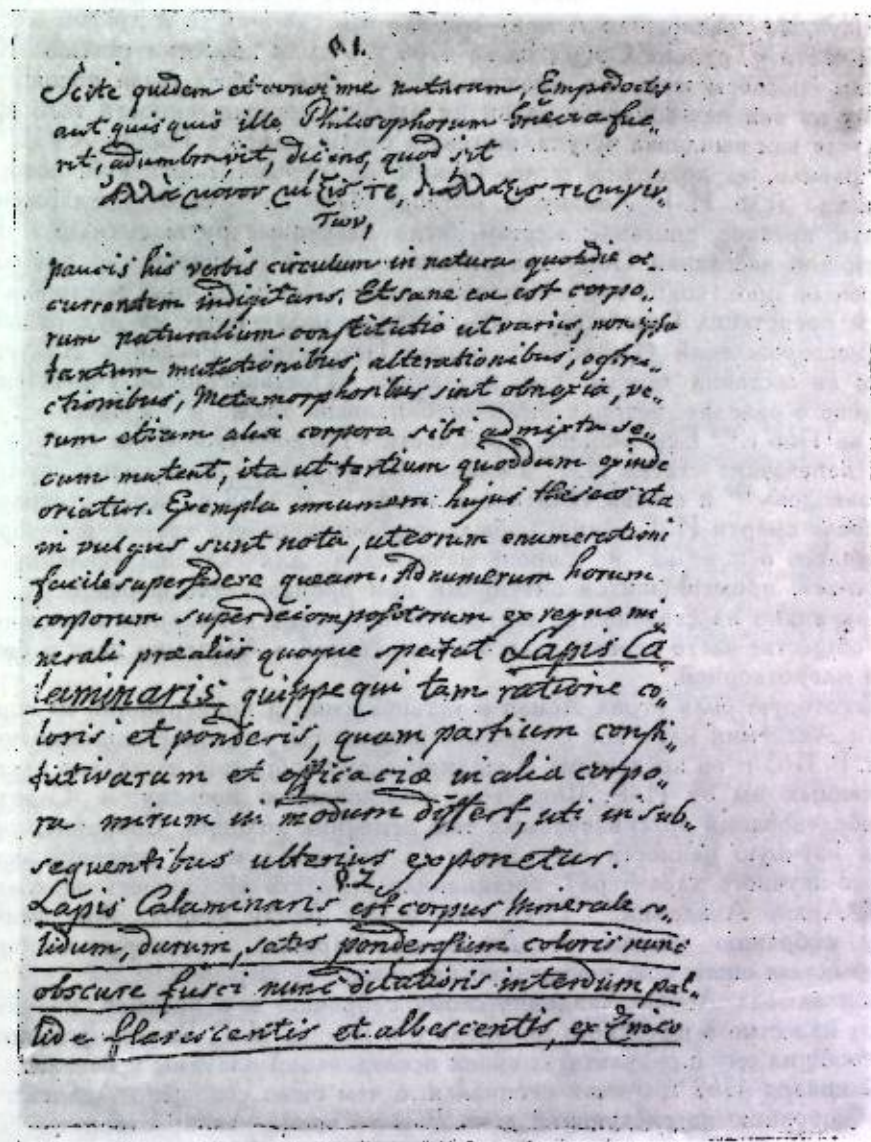 §. 1.
Scite quidem et concinne naturam, Empedocles
aut quisquis ille Philosophorum Græciæ fue„
rit, adumbravit, dicens, quod sit
Ἀλλὰ μόνον μίξις τε, διάλλαξις τε μιγέν„
των,
paucis his verbis circulum in natura quotidie oc„
currentem indigitans. Et sane ea est corpo„
rum naturalium constitutio ut variis, non ipsa
tantum mutationibus, alterationibus, destru„
ctionibus, Metamorphosibus sint obnoxia, ve„
rum etiam alia corpora sibi admixta se„
cum mutent, ita ut tertium quoddam exinde
oriatur. Exempla innumera hujus theseos ita
in vulgus sunt nota, ut eorum enumerationi
facile supersedere queam. Ad numerum horum
corporum superdecompositorum ex regno mi„
nerali præ aliis quoque spectat Lapis Ca„
laminaris, quippe qui tam ratione co„
loris et ponderis, quam partium consti„
tutivarum et efficaciæ in alia corpo„
ra mirum in modum differt, uti in sub„
sequentibus ulterius exponetur.
§. 2.
Lapis Calaminaris est corpus minerale so„
lidum, durum, satis ponderosum coloris nunc
obscure fusci nunc dilutioris interdum pal„
lide flavescentis et albescentis, ex Zinco